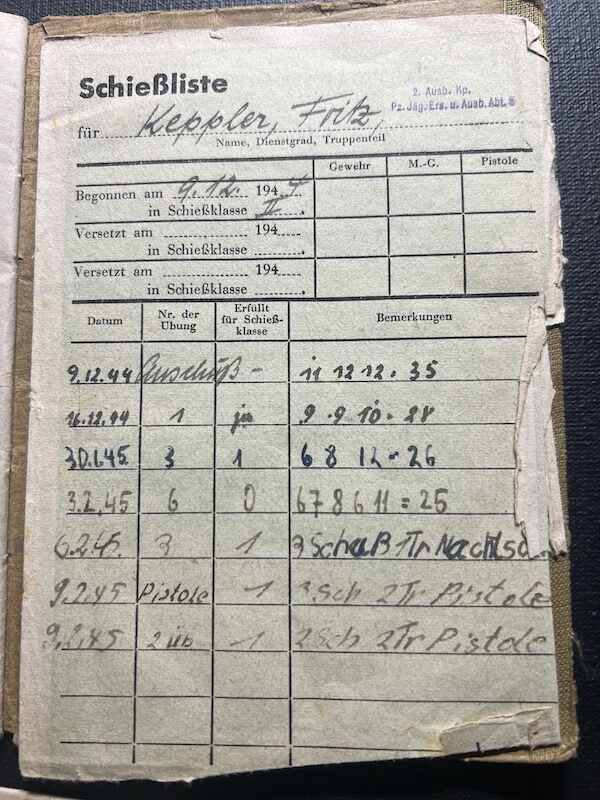 Schießliste
2. Ausb. Kp.
Pz. Jäg. Ers. u. Ausb. Abt. 5
für Keppler, Fritz,
Name, Dienstgrad, Truppenteil
Gewehr M.-G. Pistole
Begonnen am 9.12. 1944
in Schießklasse II.
Versetzt am 194
in Schießklasse
Versetzt am 194
in Schießklasse
Datum Nr. der Übung Erfüllt für Schieß-klasse Bemerkungen
9.12.44 Anschuß - 11 12 12 . 35
16.12.44 1 ja 9 . 9 10 . 28
30.1.45 3 1 6 8 12 = 26
3.2.45 6 0 6 7 8 6 11 = 25
6.2.45. 3 1 3 Schuß 1 Tr
9.2.45 Pistole 1 Sch 2 Tr Pistole
9.2.45 2 Üb 1 2 Sch 2 Tr Pistole